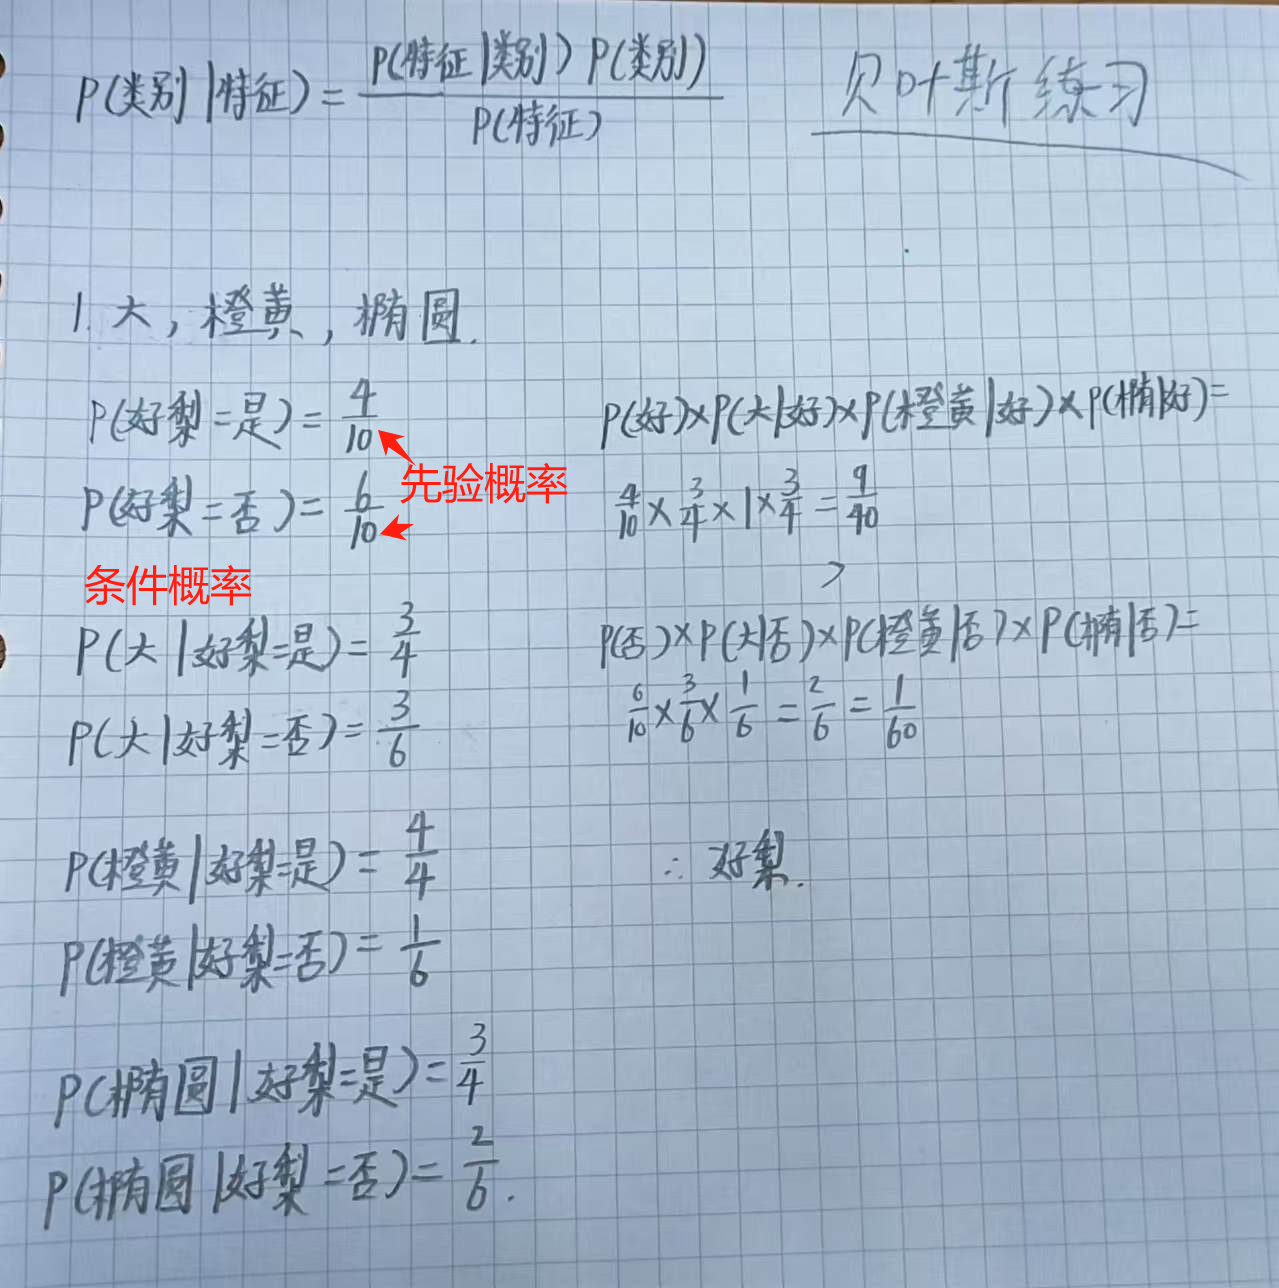 P(类别|特征) = P(特征|类别) P(类别) / P(特征)
贝叶斯练习
1. 大, 橙黄, 椭圆.
P(好梨=是) = 4/10
P(好梨=否) = 6/10
先验概率
条件概率
P(大|好梨=是) = 3/4
P(大|好梨=否) = 3/6
P(橙黄|好梨=是) = 4/4
P(橙黄|好梨=否) = 1/6
P(椭圆|好梨=是) = 3/4
P(椭圆|好梨=否) = 2/6.
P(好)×P(大|好)×P(橙黄|好)×P(椭|好)=
4/10 × 3/4 × 1 × 3/4 = 9/40
>
P(否)×P(大|否)×P(橙黄|否)×P(椭|否)=
6/10 × 3/6 × 1/6 = 2/6 = 1/60
∴ 好梨.